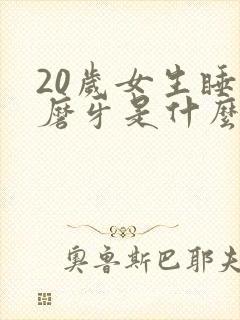 20歲女生睡
磨牙是什麼
奧魯斯巴耶夫